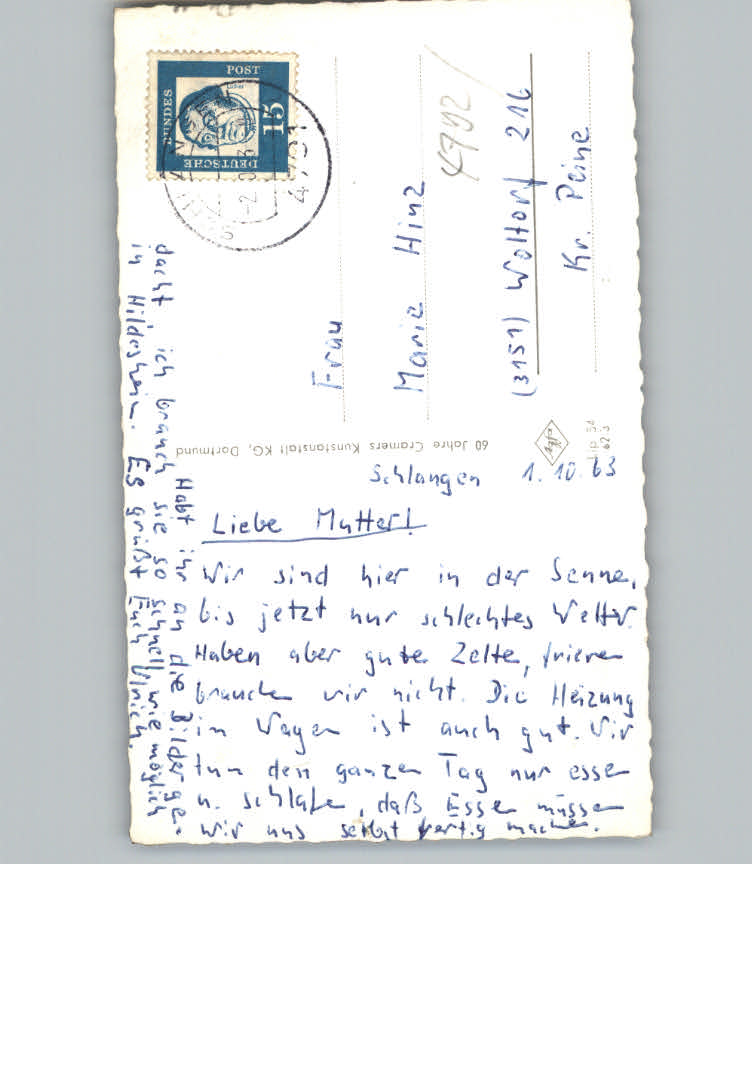 Schlangen 1.10.63
Liebe Mutter!
Wir sind hier in der Senne,
bis jetzt nur schlechtes Wetter.
Haben aber gute Zelte, frieren
brauchen wir nicht. Die Heizung
im Wagen ist auch gut. Wir
tun den ganzen Tag nur essen
u. schlafen, daß Essen müssen
wir uns selbst fertig machen.
Habt ihr an die Bilder ge-
dacht, ich brauch sie so schnell wie möglich
in Hildesheim. Es grüßt Euch Ulrich.
Frau
Marie Hinz
(3151) Woltorf 216
Kr. Peine
4792/
DEUTSCHE
BUNDES
POST
15
4791
60 Jahre Cramers Kunstanstalt KG, Dortmund
Agfa